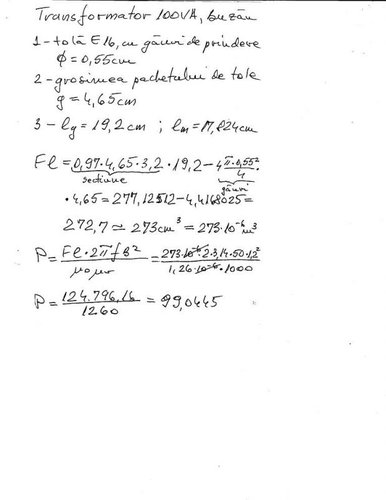 Transformator 100VA, Buzău
1 - tolă E16, cu găuri de prindere
ϕ = 0,55cm
2 - grosimea pachetului de tole
g = 4,65cm
3 - lg = 19,2cm ; lm = 17,824cm
Fl = 0,97·4,65·3,2·19,2 - 4 π·0,55²/4 ·
secțiune găuri
·4,65 = 277,12512 - 4,4168025 =
272,7 ≃ 273cm³ = 273·10⁻⁶m³
P = Fl·2πfB²/μoμr = 273·10⁻⁶·2·3,14·50·1,2²/1,26·10⁻⁶·1000
P = 124.796,16/1260 = 99,0445